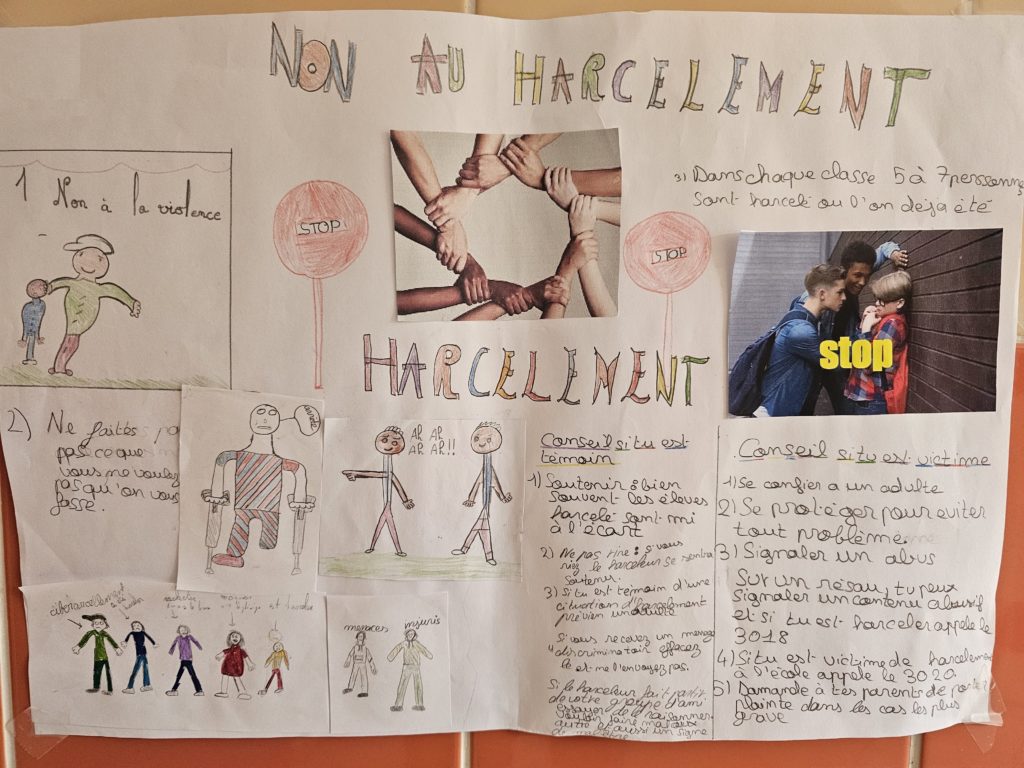 NON AU HARCELEMENT
1 Non à la violence
STOP
STOP
3) Dans chaque classe 5 à 7 personne
sont harcelé ou l'on déja été
stop
HARCELEMENT
2) Ne faites pa
pas ce que
vous me voulez
pas qu'on vous
fasse.
AR AR
AR AR!!
ciberarcellement
menaces
insuris
Conseil si tu est
témoin
1) Soutenir : bien
souvent les éleves
harcelé sont mi
à l'écart
2) Ne pas rire : si vous
riez le harceleur se sentira
soutenu.
3) Si tu est témoin d'une
situation d'harcelement
prévien un adulte
4) Si vous recevez un message
discriminatoir effacez
le et ne l'envoyez pas.
Si le harceleur fait partir
de votre groupe d'ami
essayer de le raisonner
vouloir faire mal aux
autre et aussi un signe
Conseil si tu est victime
1) Se confier a un adulte
2) Se protéger pour éviter
tout problème
3) Signaler un abus
Sur un résau, tu peux
signaler un contenu abusif
et si tu est harceler appele le
3018
4) Si tu est victime de harcelement
à l'école appele le 3020.
5) Damande à tes parents de porter
plainte dans les cas les plus
grave